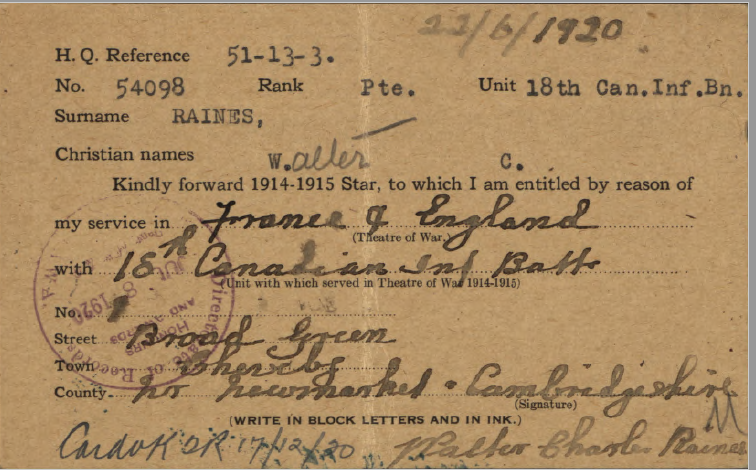 22/6/1920
H. Q. Reference 51-13-3.
No. 54098 Rank Pte. Unit 18th Can.Inf.Bn.
Surname RAINES,
Christian names W.alter C.
Kindly forward 1914-1915 Star, to which I am entitled by reason of
my service in France & England
(Theatre of War.)
with 18th Canadian Inf Batt
(Unit with which served in Theatre of War 1914-1915)
No.
Street Broad Green
Town
County. nr Newmarket. Cambridgeshire
(Signature)
(WRITE IN BLOCK LETTERS AND IN INK.)
17/12/20 Walter Charles Raines
Directorate of Records
HONOURS
AND AWARDS
1920